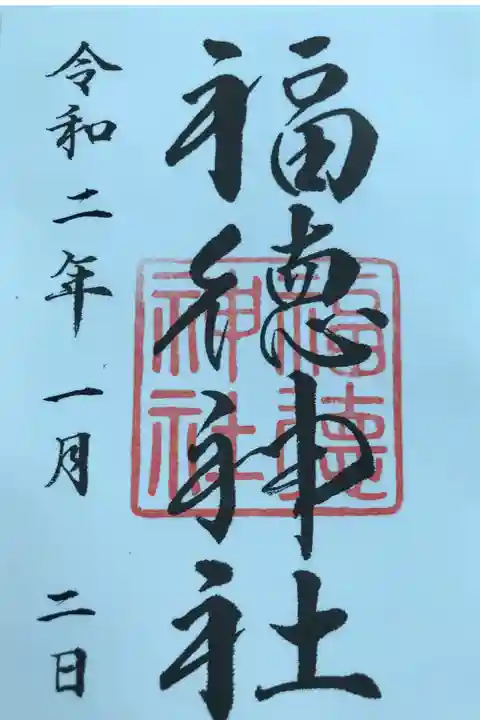 福德神社
福徳神社
令和二年一月 二日